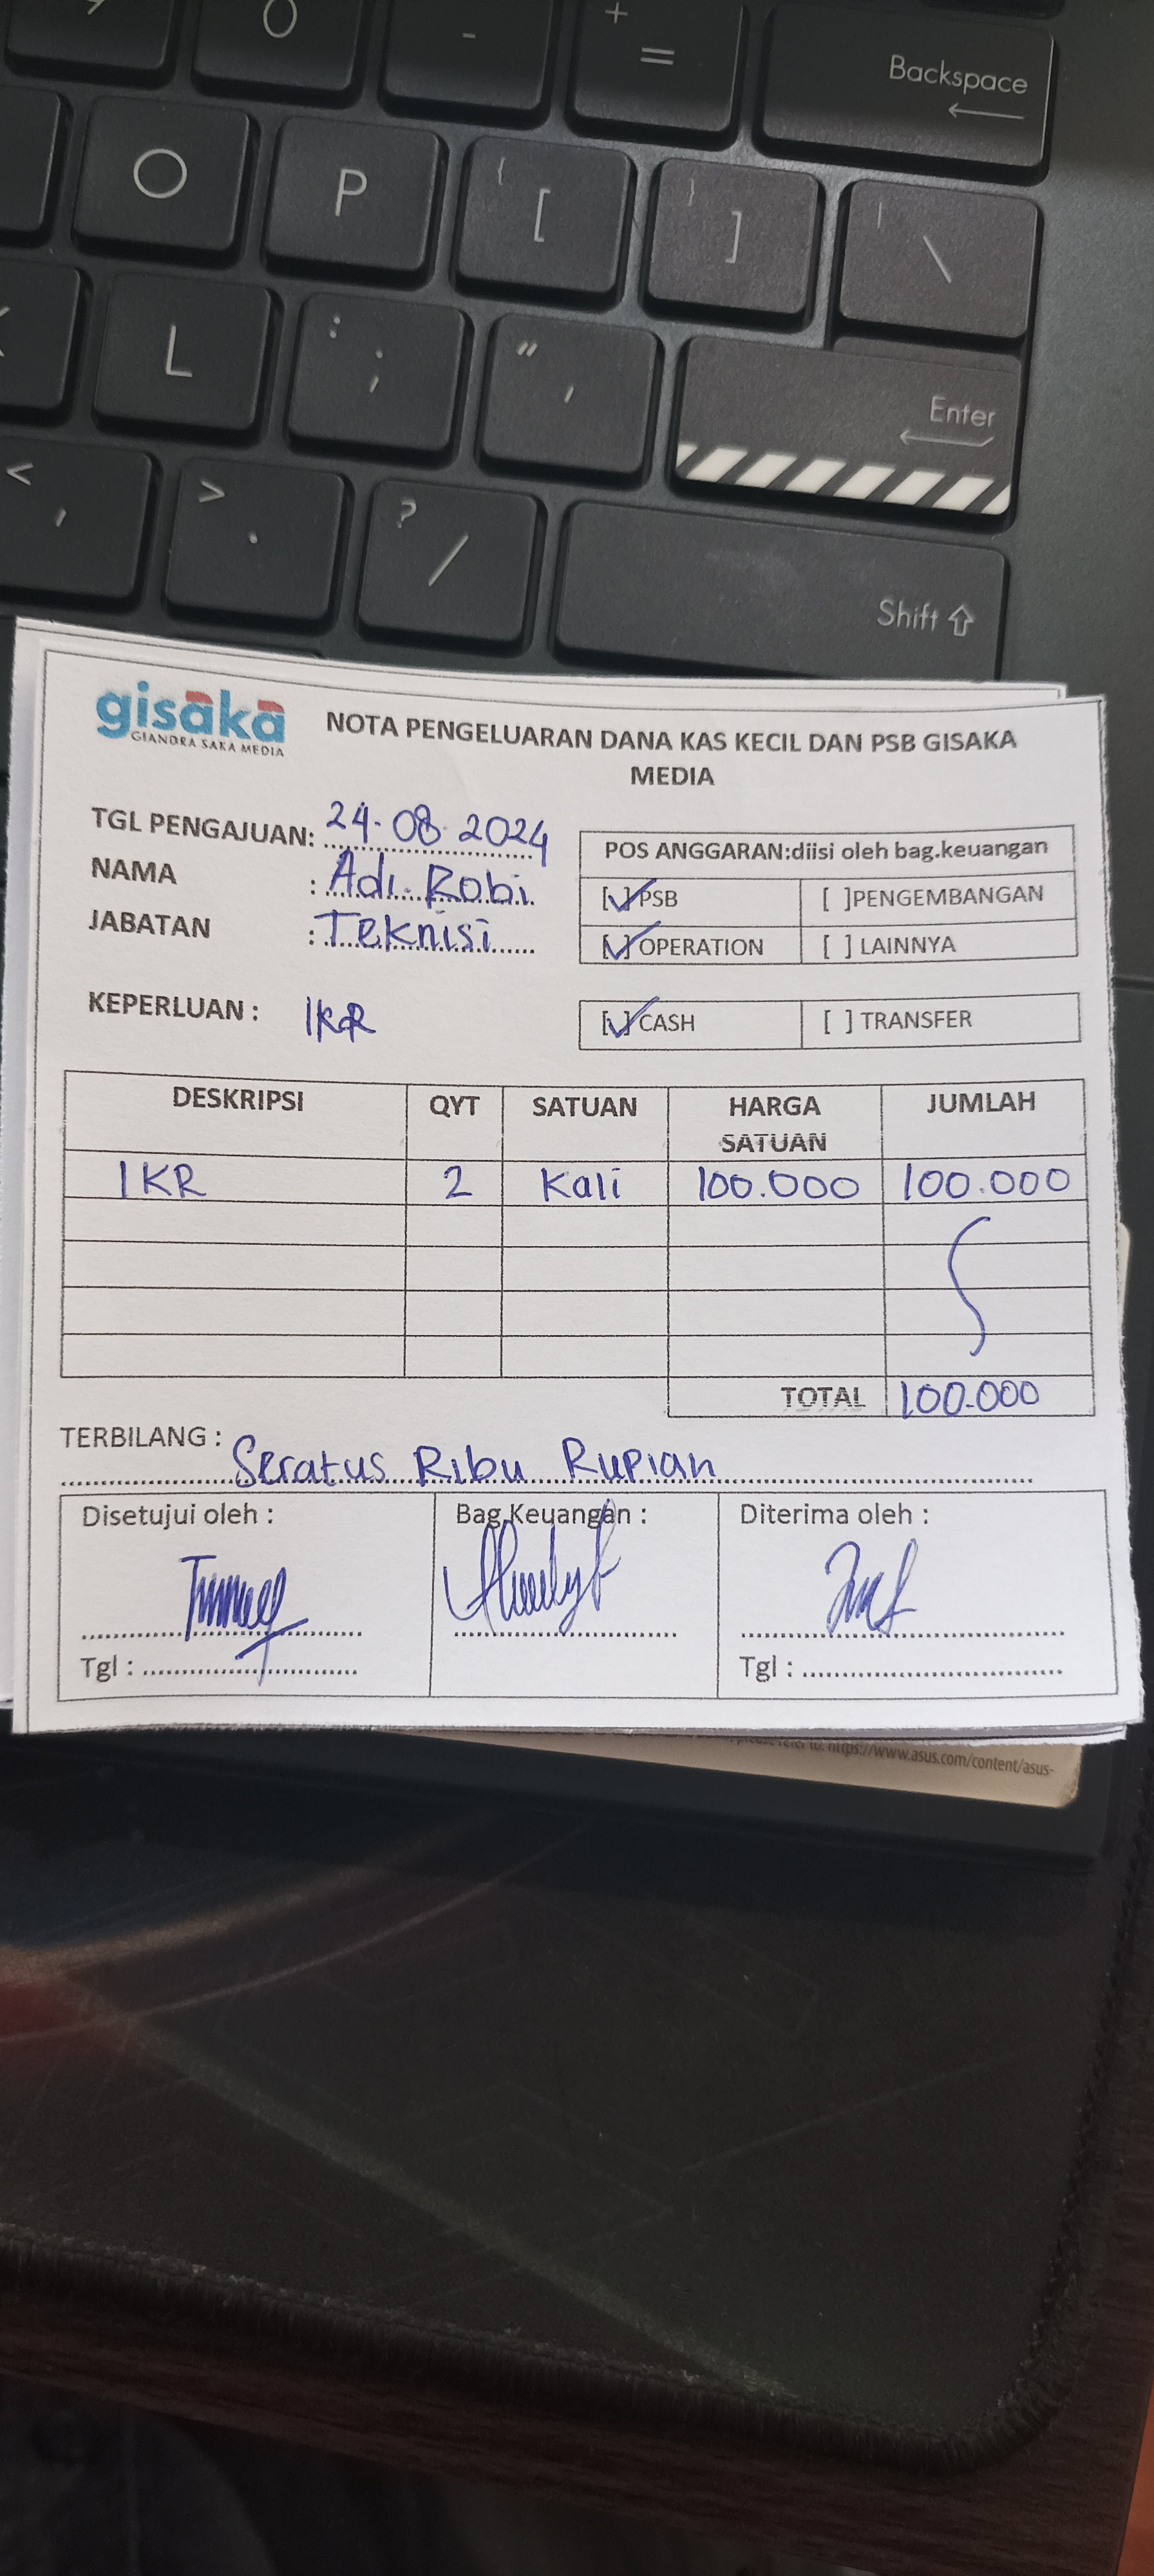 0 - + =
Backspace
O P { [ } ] | \
L : ; " ,
Enter
< , > . ? /
Shift
gisaka
GIANDRA SAKA MEDIA
NOTA PENGELUARAN DANA KAS KECIL DAN PSB GISAKA
MEDIA
TGL PENGAJUAN: 24-08-2024
NAMA : Adi. Robi
JABATAN : Teknisi
POS ANGGARAN:diisi oleh bag.keuangan
[✓] PSB [ ]PENGEMBANGAN
[✓] OPERATION [ ] LAINNYA
KEPERLUAN : IKR
[✓] CASH [ ] TRANSFER
DESKRIPSI QYT SATUAN HARGA SATUAN JUMLAH
IKR 2 Kali 100.000 100.000
TOTAL 100.000
TERBILANG :
Seratus Ribu Rupiah
Disetujui oleh : Bag.Keuangan : Diterima oleh :
Tgl : Tgl :
refer to: https://www.asus.com/content/asus-